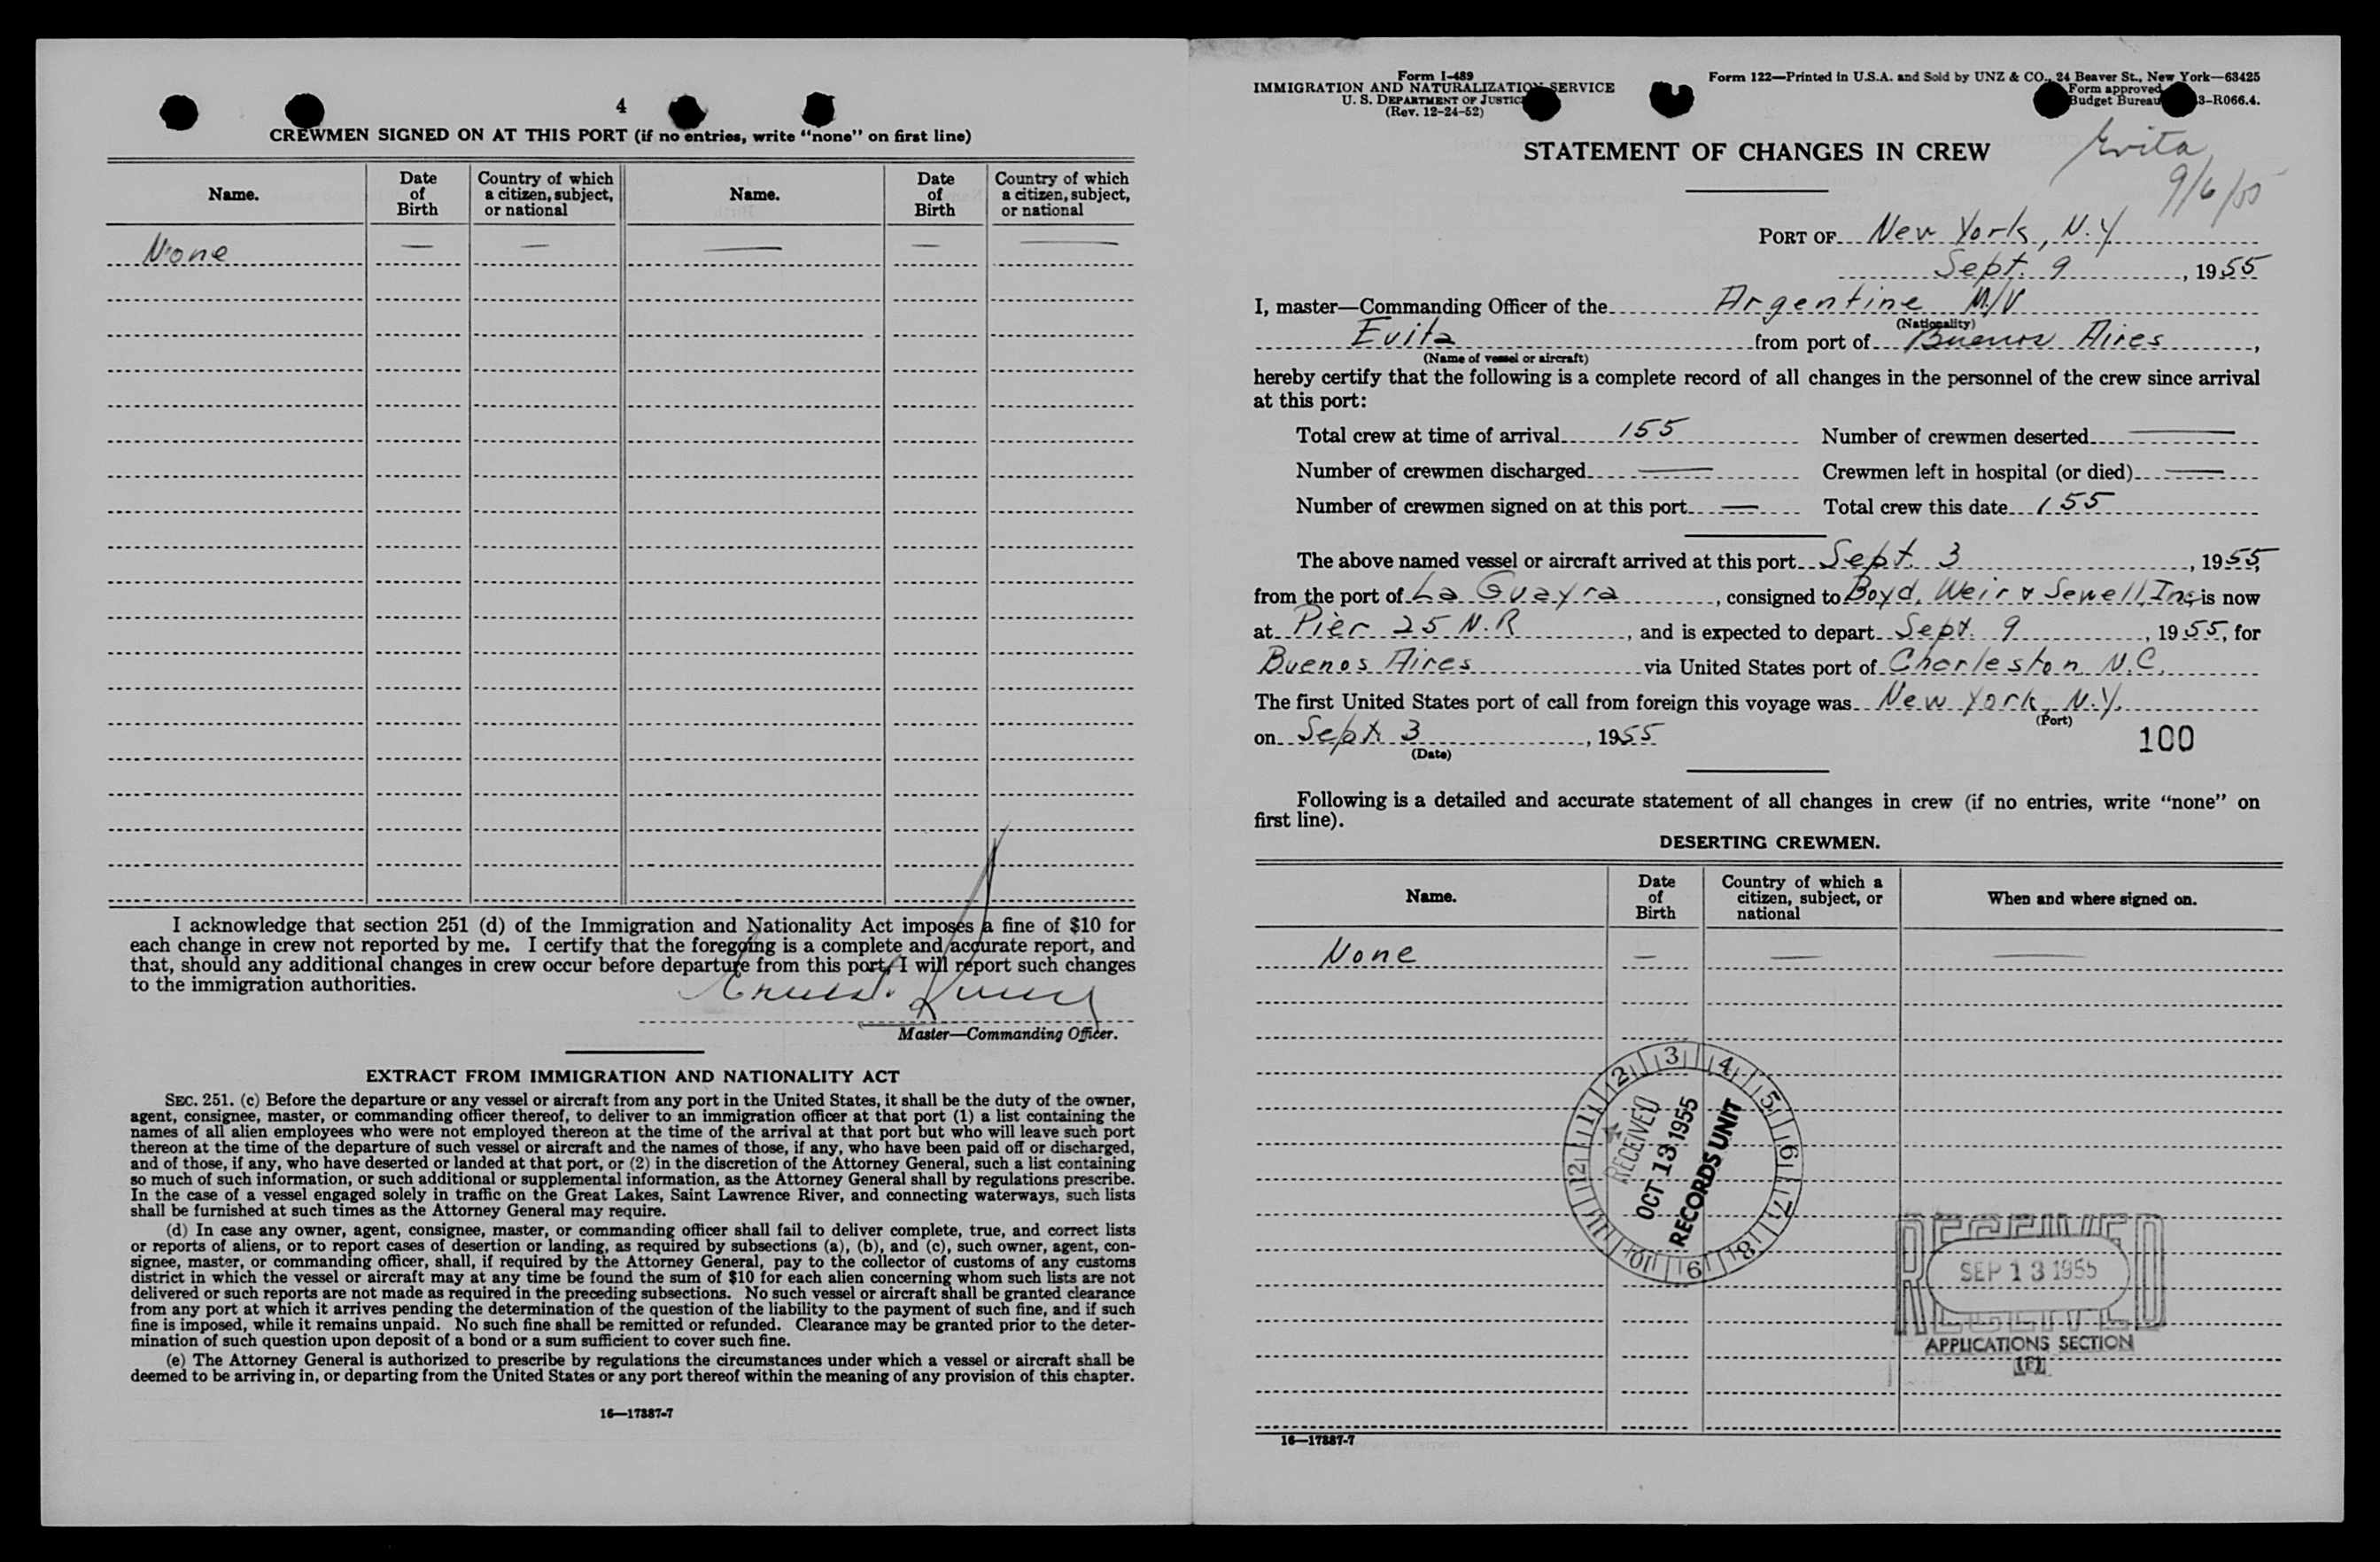 4
CREWMEN SIGNED ON AT THIS PORT (if no entries, write "none" on first line)
Name. Date of Birth Country of which a citizen, subject, or national Name. Date of Birth Country of which a citizen, subject, or national
None — — — — —
I acknowledge that section 251 (d) of the Immigration and Nationality Act imposes a fine of $10 for
each change in crew not reported by me. I certify that the foregoing is a complete and accurate report, and
that, should any additional changes in crew occur before departure from this port, I will report such changes
to the immigration authorities.
Master—Commanding Officer.
EXTRACT FROM IMMIGRATION AND NATIONALITY ACT
SEC. 251. (c) Before the departure or any vessel or aircraft from any port in the United States, it shall be the duty of the owner,
agent, consignee, master, or commanding officer thereof, to deliver to an immigration officer at that port (1) a list containing the
names of all alien employees who were not employed thereon at the time of the arrival at that port but who will leave such port
thereon at the time of the departure of such vessel or aircraft and the names of those, if any, who have been paid off or discharged,
and of those, if any, who have deserted or landed at that port, or (2) in the discretion of the Attorney General, such a list containing
so much of such information, or such additional or supplemental information, as the Attorney General shall by regulations prescribe.
In the case of a vessel engaged solely in traffic on the Great Lakes, Saint Lawrence River, and connecting waterways, such lists
shall be furnished at such times as the Attorney General may require.
(d) In case any owner, agent, consignee, master, or commanding officer shall fail to deliver complete, true, and correct lists
or reports of aliens, or to report cases of desertion or landing, as required by subsections (a), (b), and (c), such owner, agent, con-
signee, master, or commanding officer, shall, if required by the Attorney General, pay to the collector of customs of any customs
district in which the vessel or aircraft may at any time be found the sum of $10 for each alien concerning whom such lists are not
delivered or such reports are not made as required in the preceding subsections. No such vessel or aircraft shall be granted clearance
from any port at which it arrives pending the determination of the question of the liability to the payment of such fine, and if such
fine is imposed, while it remains unpaid. No such fine shall be remitted or refunded. Clearance may be granted prior to the deter-
mination of such question upon deposit of a bond or a sum sufficient to cover such fine.
(e) The Attorney General is authorized to prescribe by regulations the circumstances under which a vessel or aircraft shall be
deemed to be arriving in, or departing from the United States or any port thereof within the meaning of any provision of this chapter.
16—17887-7
Form I-489
IMMIGRATION AND NATURALIZATION SERVICE
U. S. DEPARTMENT OF JUSTICE
(Rev. 12-24-52)
Form 122—Printed in U.S.A. and Sold by UNZ & CO., 24 Beaver St., New York—63425
Form approved
Budget Bureau 3-R066.4.
STATEMENT OF CHANGES IN CREW
Evita
9/6/55
PORT OF New York, N.Y
Sept. 9, 1955
I, master—Commanding Officer of the Argentine M/V
(Nationality)
Evita from port of Buenos Aires,
(Name of vessel or aircraft)
hereby certify that the following is a complete record of all changes in the personnel of the crew since arrival
at this port:
Total crew at time of arrival 155 Number of crewmen deserted —
Number of crewmen discharged — Crewmen left in hospital (or died) —
Number of crewmen signed on at this port — Total crew this date 155
The above named vessel or aircraft arrived at this port Sept. 3, 1955,
from the port of La Guayra, consigned to Boyd, Weir & Sewell, Inc, is now
at Pier 25 N.R, and is expected to depart Sept. 9, 1955, for
Buenos Aires via United States port of Charleston N.C.
The first United States port of call from foreign this voyage was New York, N.Y.
(Port)
on Sept 3, 1955
(Date)
100
Following is a detailed and accurate statement of all changes in crew (if no entries, write "none" on
first line).
DESERTING CREWMEN.
Name. Date of Birth Country of which a citizen, subject, or national When and where signed on.
None — — —
1 2 3 4 5 6 7 8 9 10 11 12
RECEIVED
OCT 13 1955
RECORDS UNIT
RECEIVED
SEP 13 1955
RECEIVED
APPLICATIONS SECTION
16—17887-7